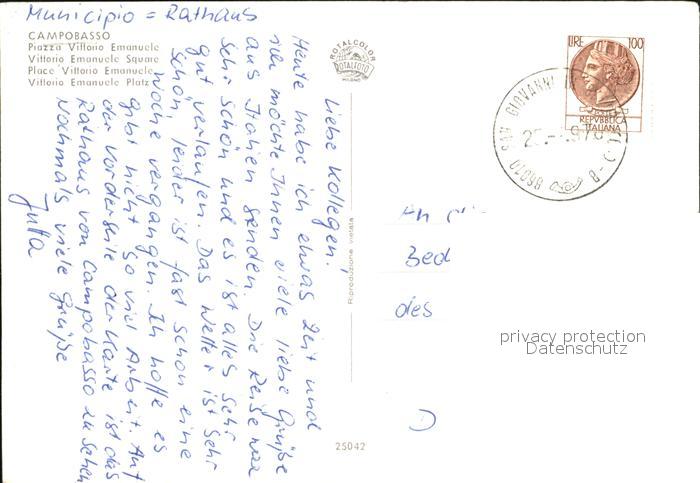 Municipio = Rathaus
CAMPOBASSO
Piazza Vittorio Emanuele
Vittorio Emanuele Square
Place Vittorio Emanuele
Vittorio Emanuele Platz
ROTALCOLOR
ROTALFOTO
MILANO
Liebe Kollegen!
Heute habe ich etwas Zeit und
ich möchte Ihnen viele liebe Grüße
aus Italien senden. Die Reise war
sehr schön und es ist alles sehr
gut verlaufen. Das Wetter ist sehr
schön, leider ist fast schon eine
Woche vergangen. Ich hoffe es
gibt nicht so viel Arbeit. Auf
der Vorderseite der Karte ist das
Rathaus von Campobasso zu sehen
Nochmals viele Grüße
Jutta
Riproduzione vietata
25042
LIRE 100
REPVBBLICA
ITALIANA
SAN GIOVANNI
86010
An
Bed
des
D
privacy protection
Datenschutz